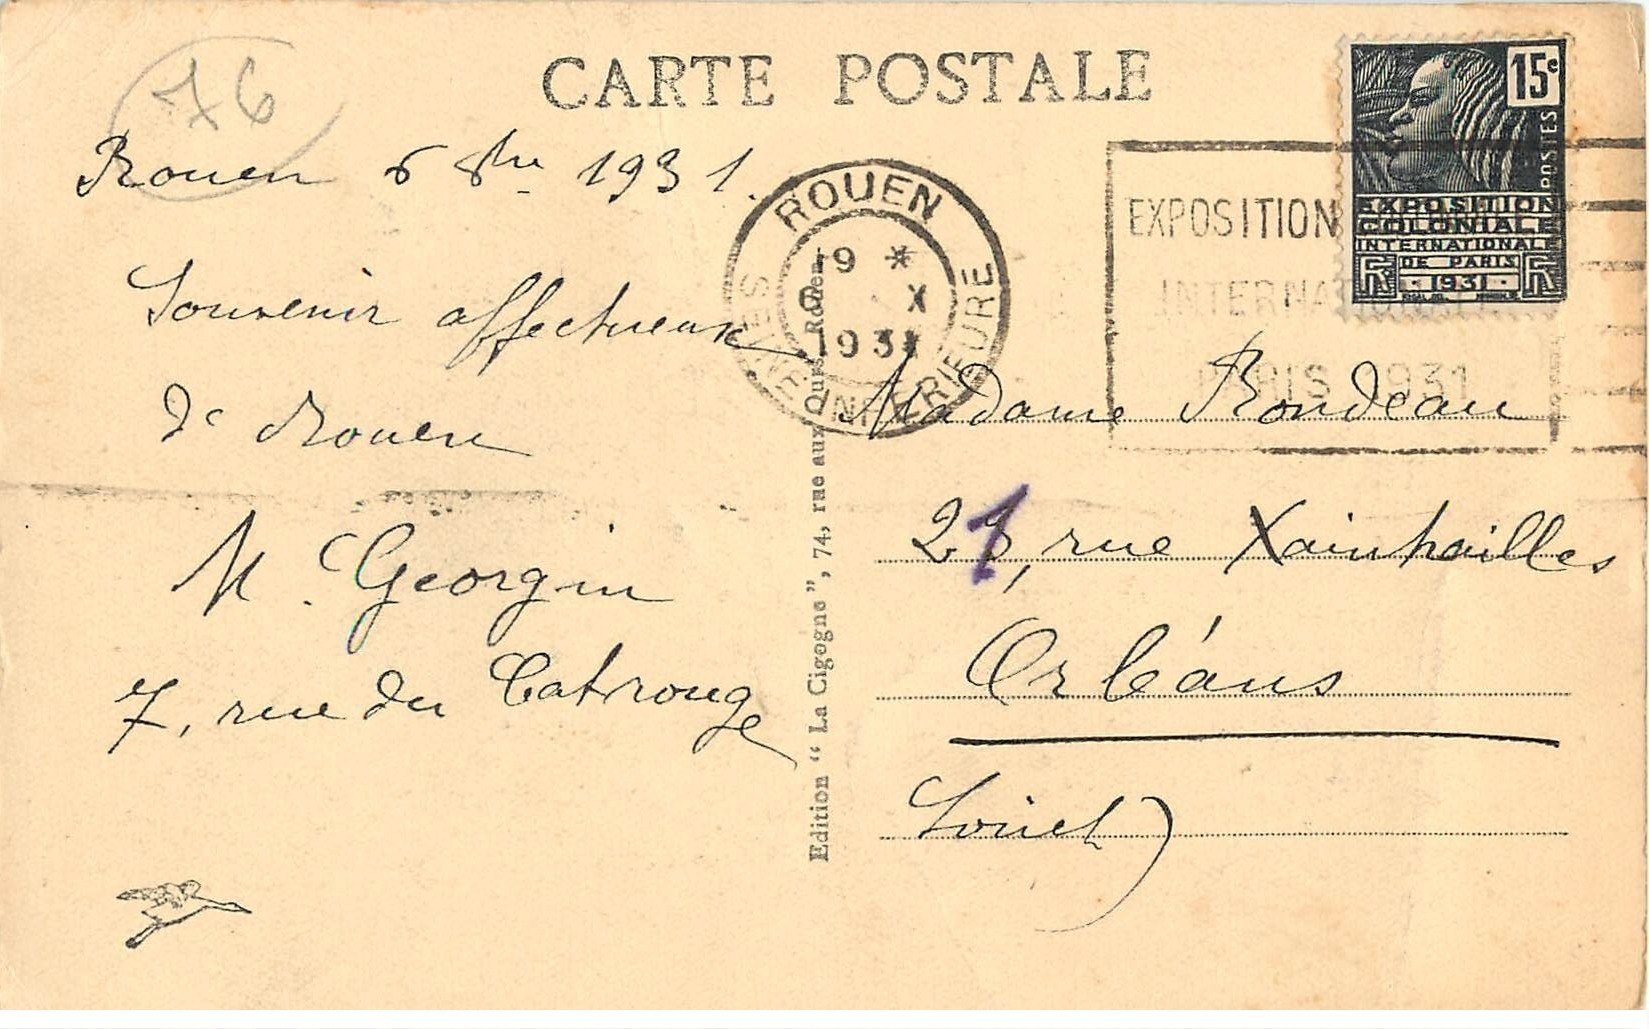 CARTE POSTALE
76
Rouen 6 8bre 1931.
Souvenir affectueux
de Rouen
M. Georgin
7, rue du Catrouge
ROUEN
19 *
X
1931
SEINE INFÉRIEURE
EXPOSITION
INTERNA
PARIS 1931
15c
POSTES
EXPOSITION
COLONIALE
INTERNATIONALE
DE PARIS
1931
Edition “ La Cigogne ”, 74, rue aux Ours, Rouen
Madame Rondeau
21, rue Xaintrailles
Orléans
Loiret)